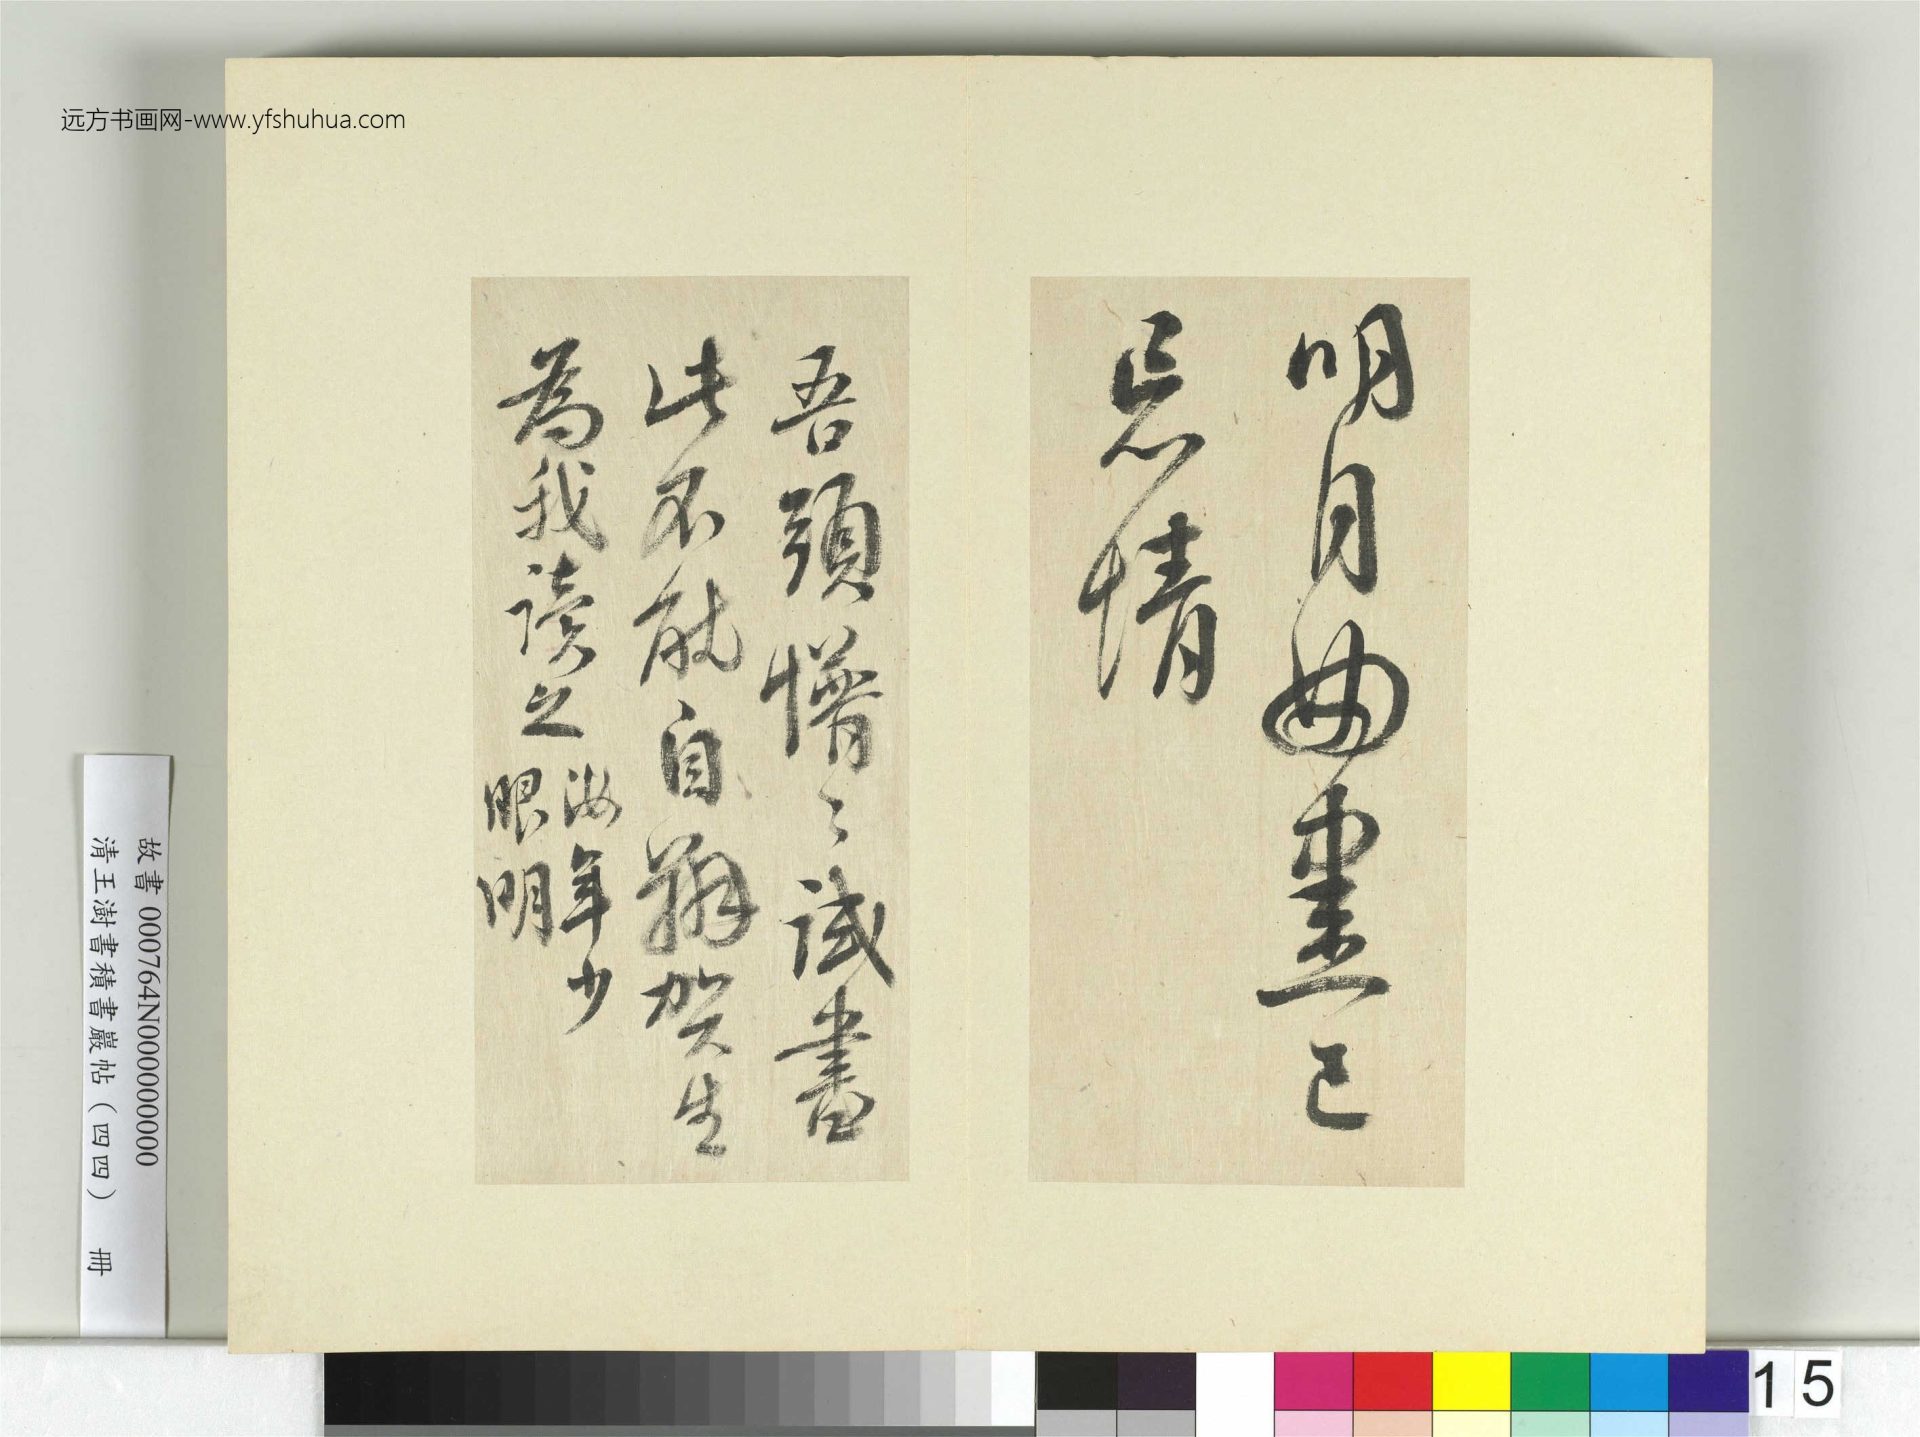 远方书画网-www.yfshuhua.com
明月已
忘情
吾頭懵〻試書
此不能自辨賀生
為我讀之
汝年少
眼明
故書 000764N000000000
清王澍書積書巖帖（四四） 冊
15